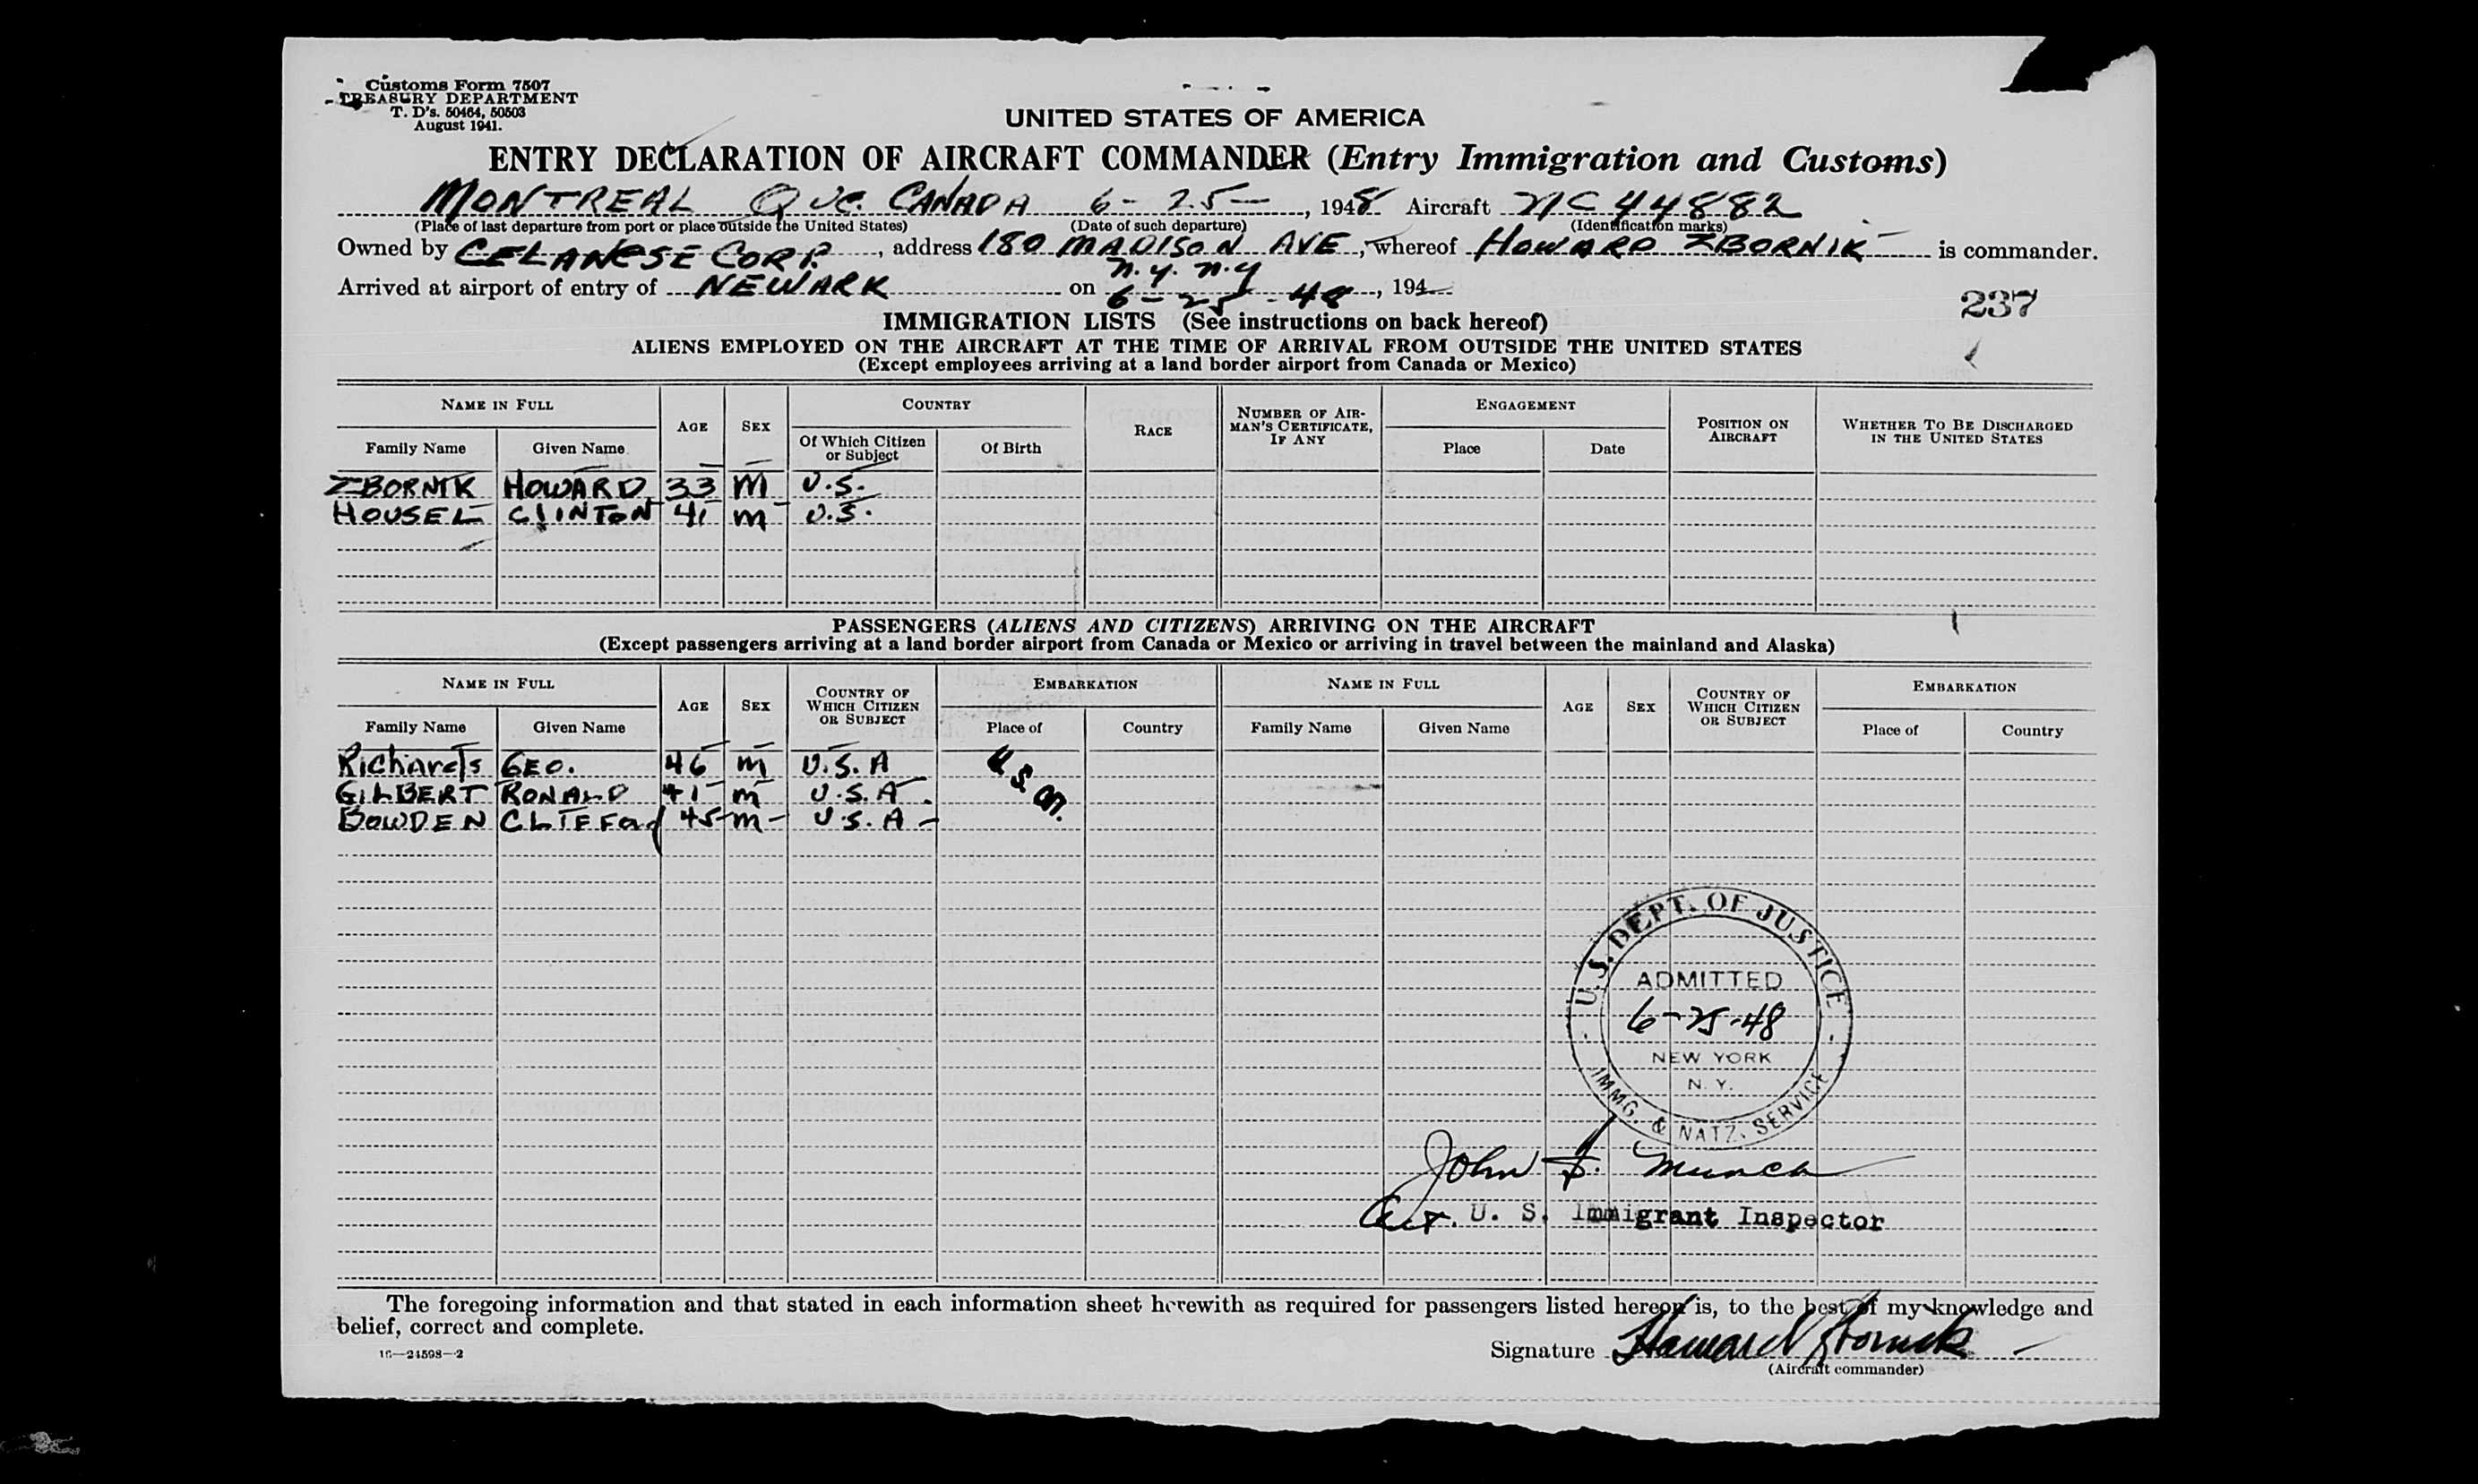 Customs Form 7507
TREASURY DEPARTMENT
T. D's. 50464, 50503
August 1941.
UNITED STATES OF AMERICA
ENTRY DECLARATION OF AIRCRAFT COMMANDER (Entry Immigration and Customs)
MONTREAL QUE. CANADA 6-25-, 1948 Aircraft NC 44882
(Place of last departure from port or place outside the United States) (Date of such departure) (Identification marks)
Owned by CELANESE CORP., address 180 MADISON AVE, whereof HOWARD ZBORNIK is commander.
N.Y. N.Y
Arrived at airport of entry of NEWARK on 6-25-48, 194
237
IMMIGRATION LISTS (See instructions on back hereof)
ALIENS EMPLOYED ON THE AIRCRAFT AT THE TIME OF ARRIVAL FROM OUTSIDE THE UNITED STATES
(Except employees arriving at a land border airport from Canada or Mexico)
NAME IN FULL AGE SEX COUNTRY RACE NUMBER OF AIRMAN'S CERTIFICATE, IF ANY ENGAGEMENT POSITION ON AIRCRAFT WHETHER TO BE DISCHARGED IN THE UNITED STATES
Family Name Given Name Of Which Citizen or Subject Of Birth Place Date
ZBORNIK HOWARD 33 M U.S.
HOUSEL CLINTON 41 M U.S.
PASSENGERS (ALIENS AND CITIZENS) ARRIVING ON THE AIRCRAFT
(Except passengers arriving at a land border airport from Canada or Mexico or arriving in travel between the mainland and Alaska)
NAME IN FULL AGE SEX COUNTRY OF WHICH CITIZEN OR SUBJECT EMBARKATION NAME IN FULL AGE SEX COUNTRY OF WHICH CITIZEN OR SUBJECT EMBARKATION
Family Name Given Name Place of Country Family Name Given Name Place of Country
Richards GEO. 46 M U.S.A
GILBERT RONALD 41 M U.S.A.
BOWDEN CLIFFord 45 M U.S.A
U.S. DEPT. OF JUSTICE
ADMITTED
6-25-48
NEW YORK
N. Y.
IMMG. & NATZ. SERVICE
John F. Munch
U. S. Immigrant Inspector
The foregoing information and that stated in each information sheet herewith as required for passengers listed hereon is, to the best of my knowledge and
belief, correct and complete.
16—24598-2
Signature Howard Zbornik
(Aircraft commander)